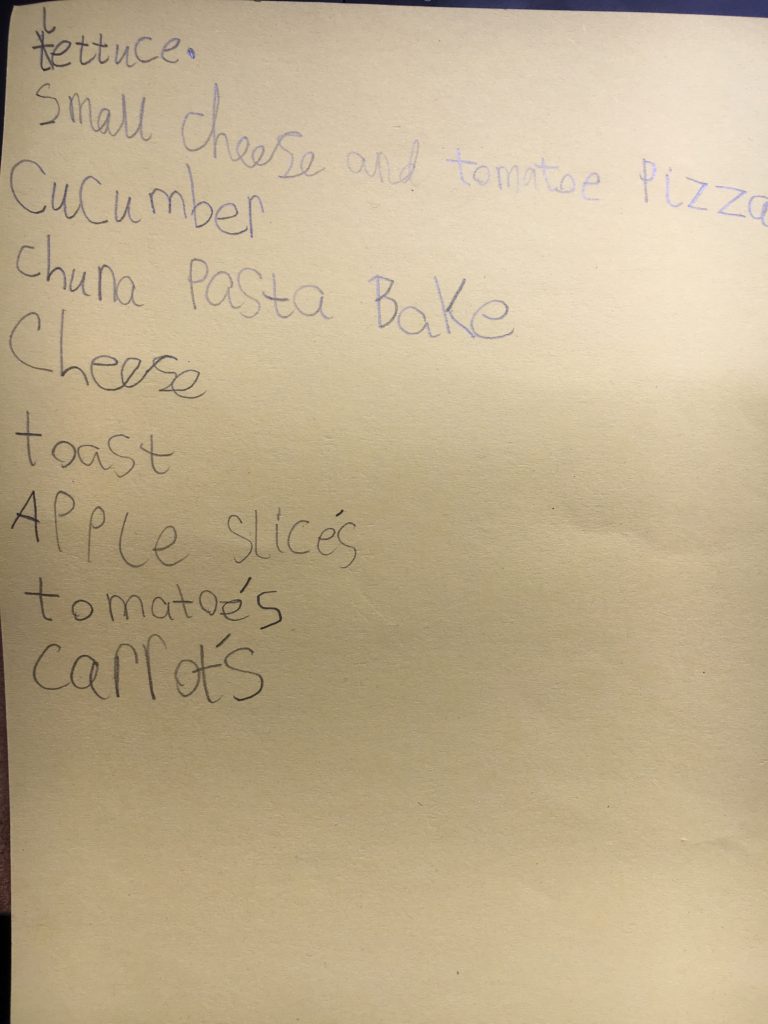 lettuce.
small cheese and tomatoe Pizza
Cucumber
chuna Pasta Bake
Cheese
toast
APPle slice's
tomatoe's
carrot's